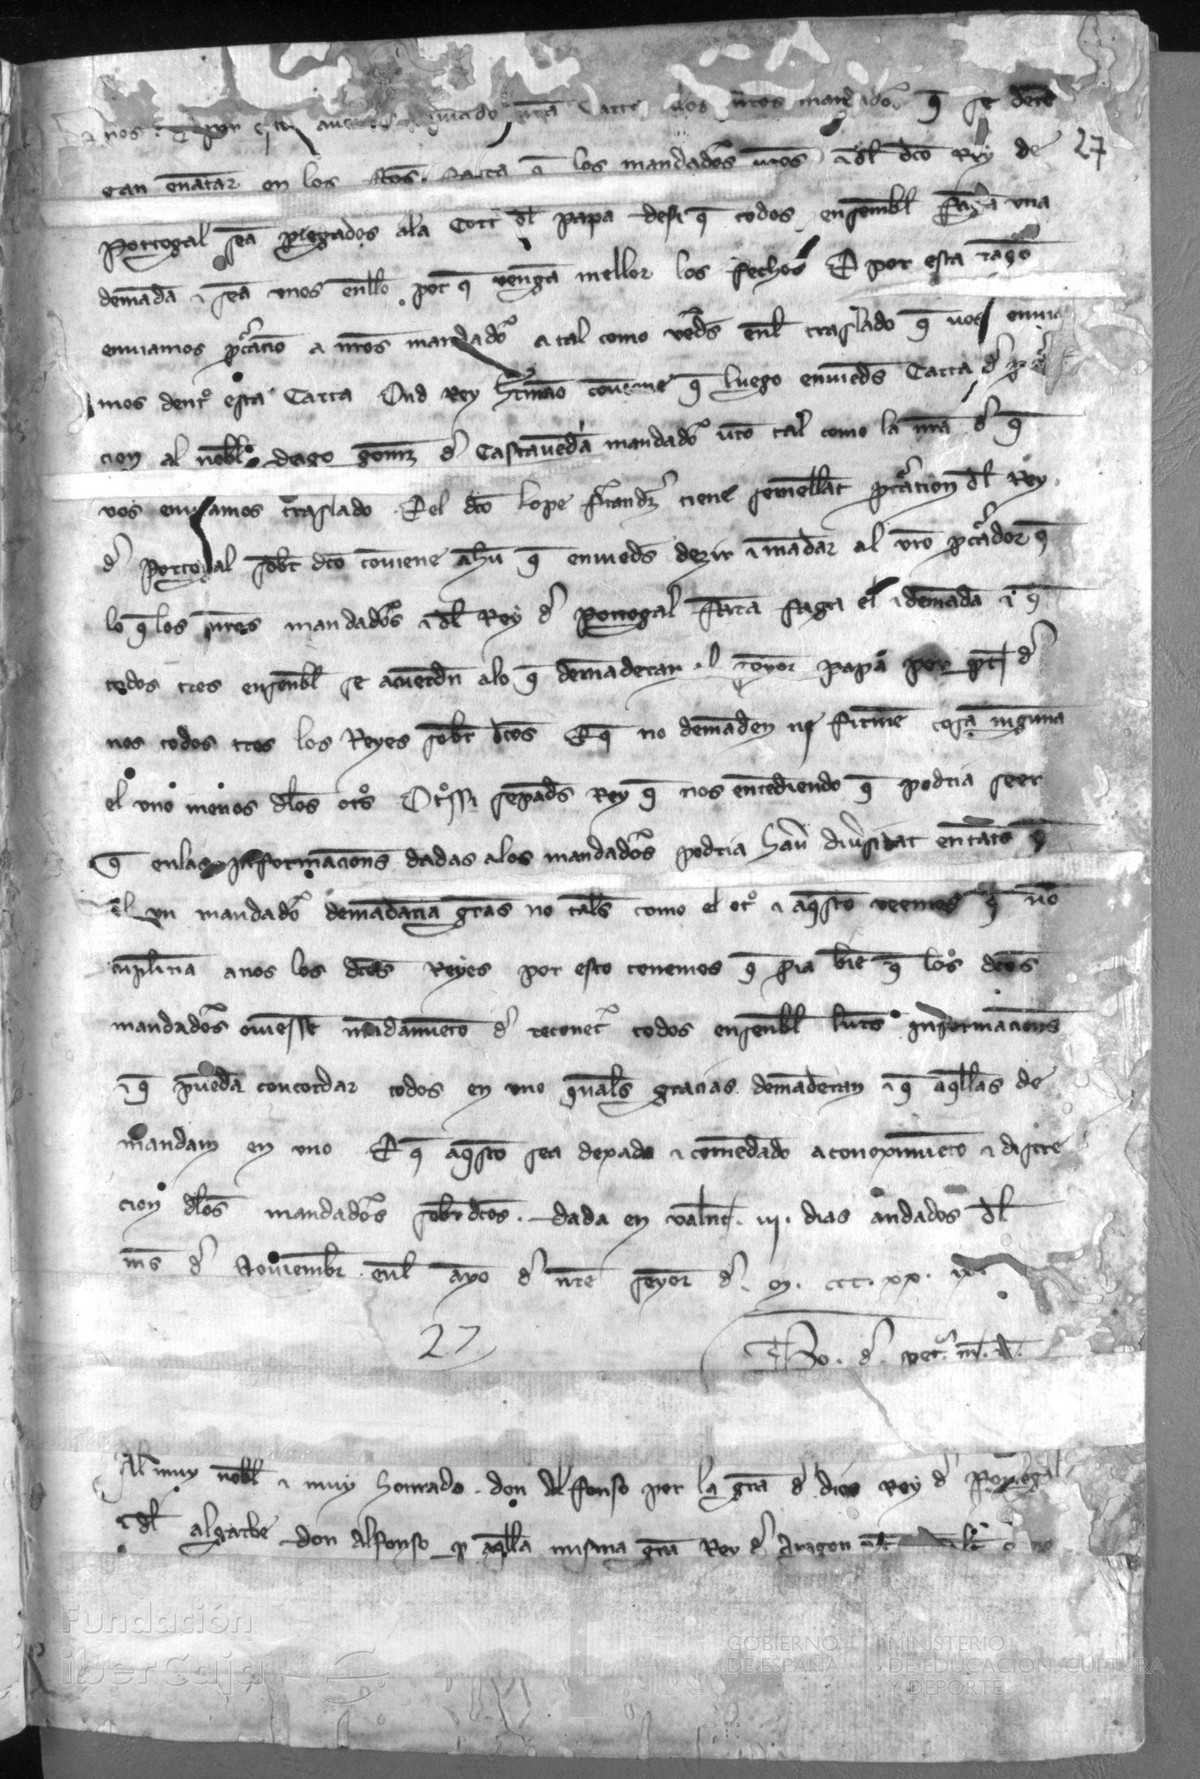 nos . mandado nra Carta los nros mandados q̄ se dete
27
can entrar en los fcos . Carta q̄ los mandados nros i dl dco Rey de
Portogal sea plegados ala Cort dl papa desi q̄ todos ensembl faga una
demāda i sea unos enllo por q̄ venga mellor los fechos E por esta raço
enviamos pcracio a nros mandados atal como veds enl traslado q̄ vos envia
mos dent esta Carta Ond Rey hrmāo conviene q̄ luego envieds Carta d pcra
cion al nobl Diago gomz d Castanyeda mandado vro tal como la nra d q̄
vos enviamos traslado . El dco Lope Frrandz tiene semellāt pcracion dl Rey
d Portogal sobr dco conviene ahu q̄ envieds dezir i mādar al vro pcrador q̄
lo q̄ los nros mandados i dl Rey d Portogal fara faga el i demāda i q̄
todos tres ensenbl se acuerdn alo q̄ demāderan papa por pt d
nos todos tres los Reyes sobr dcos E q̄ no demāden ni firme cosa ninguna
el uno menos dlos otrs Otrossi sepads Rey q̄ nos entēdiendo q̄ podria seer
q̄ enlas informacions dadas alos mandados podria hav diversitat entats q̄
el un mandado demādaria gras no tals como el otr i aqsto veemos q̄ no
cūpliria anos los dcos Reyes por esto tenemos q̄ sia bie q̄ los dcos
mandados oviesse mādamiento d reconetr todos ensenbl lurs informacions
i q̄ pueda concordar todos en uno quals gracias demāderan i q̄ aqllas de
mandam en uno E q̄ aqsto sea dexado i comēdado a conoximiēto i discre
cion dlos mandados sobr dcos . Dada en Valent . iii . dias andados dl
mes d Noviembr enl anyo d nre senyor d . m . ccc . xx . ix .
27
Bo . d . petr . m . d .
Al muy nobl i muy honrado . don Alfonso por la gra d dios Rey d Portogal
i dl algarbe don Alfonso p aqlla misma gra Rey d Aragon
Fundación
iberCaja
GOBIERNO
DE ESPAÑA
MINISTERIO
DE EDUCACIÓN, CULTURA
Y DEPORTE